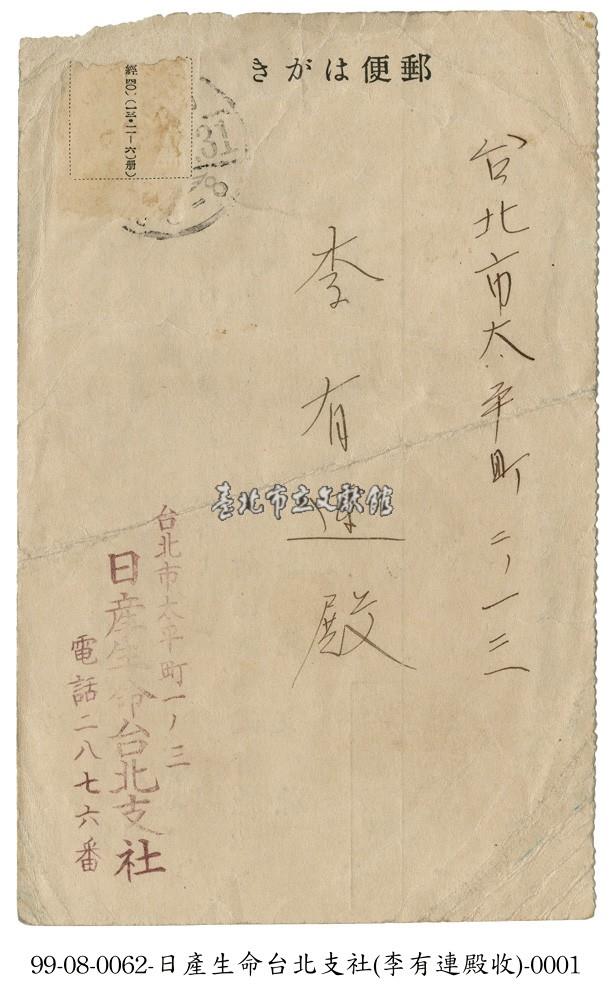 きがは便郵
經印(一三・二一六)册
31
台北市太平町二ノ一三
李有連殿
臺北市立文獻館
台北市太平町一ノ三
日産生命台北支社
電話二八七六番
99-08-0062-日產生命台北支社(李有連殿收)-0001